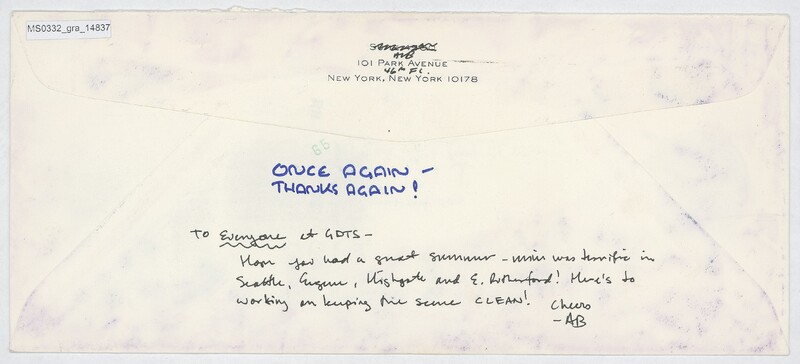 MS0332_gra_14837
AB
101 PARK AVENUE
46th FL.
NEW YORK, NEW YORK 10178
65
ONCE AGAIN –
THANKS AGAIN!
To Everyone at GDTS –
Hope you had a great summer – mine was terrific in
Seattle, Eugene, Highgate and E. Rutherford! Here's to
working on keeping the scene CLEAN!
Cheers
– AB